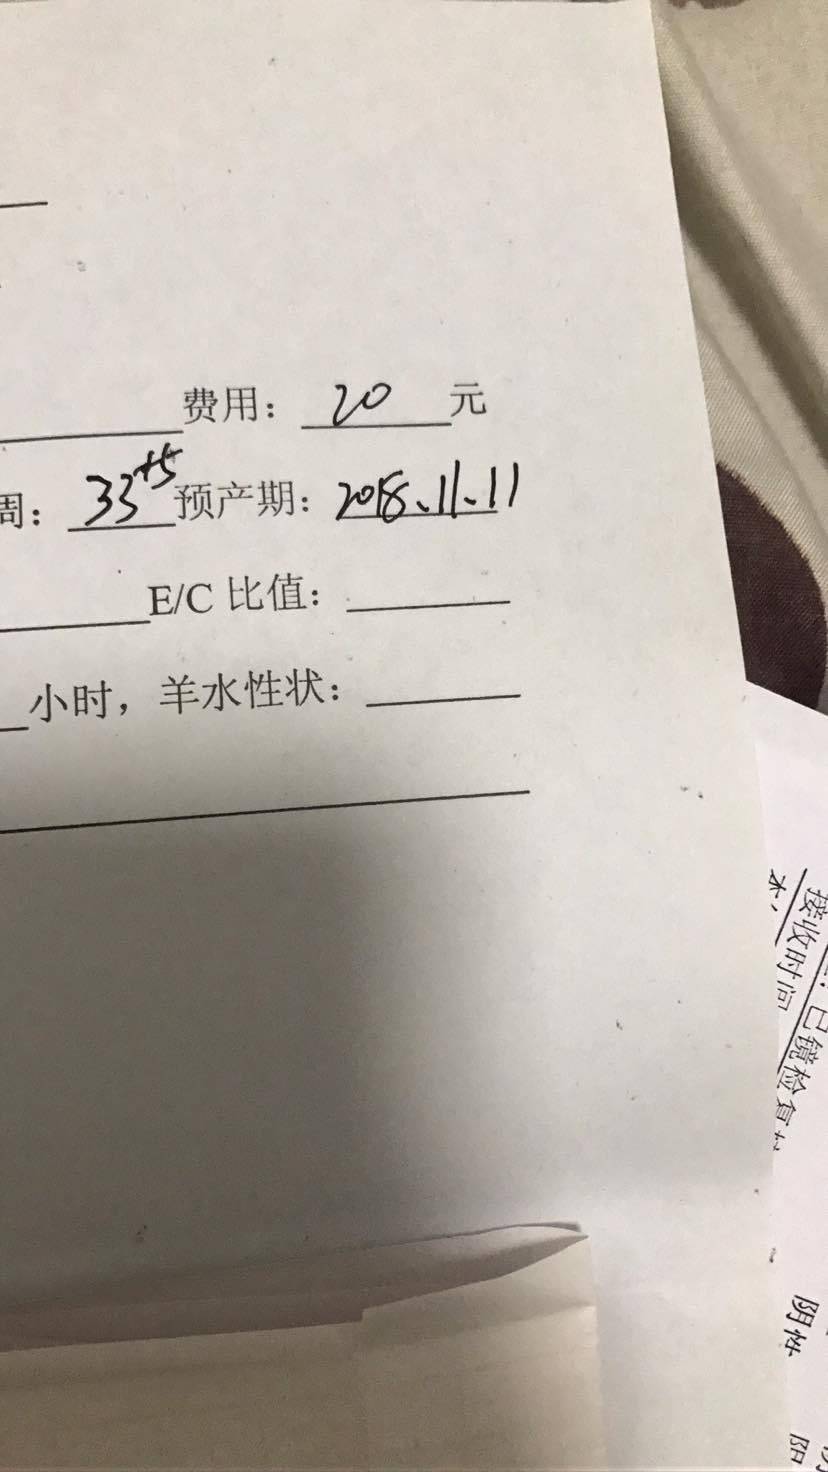 费用：20元
周：33+5 预产期：2018、11、11
E/C 比值：
小时，羊水性状：
接收时间
已镜检复
阴性
阴